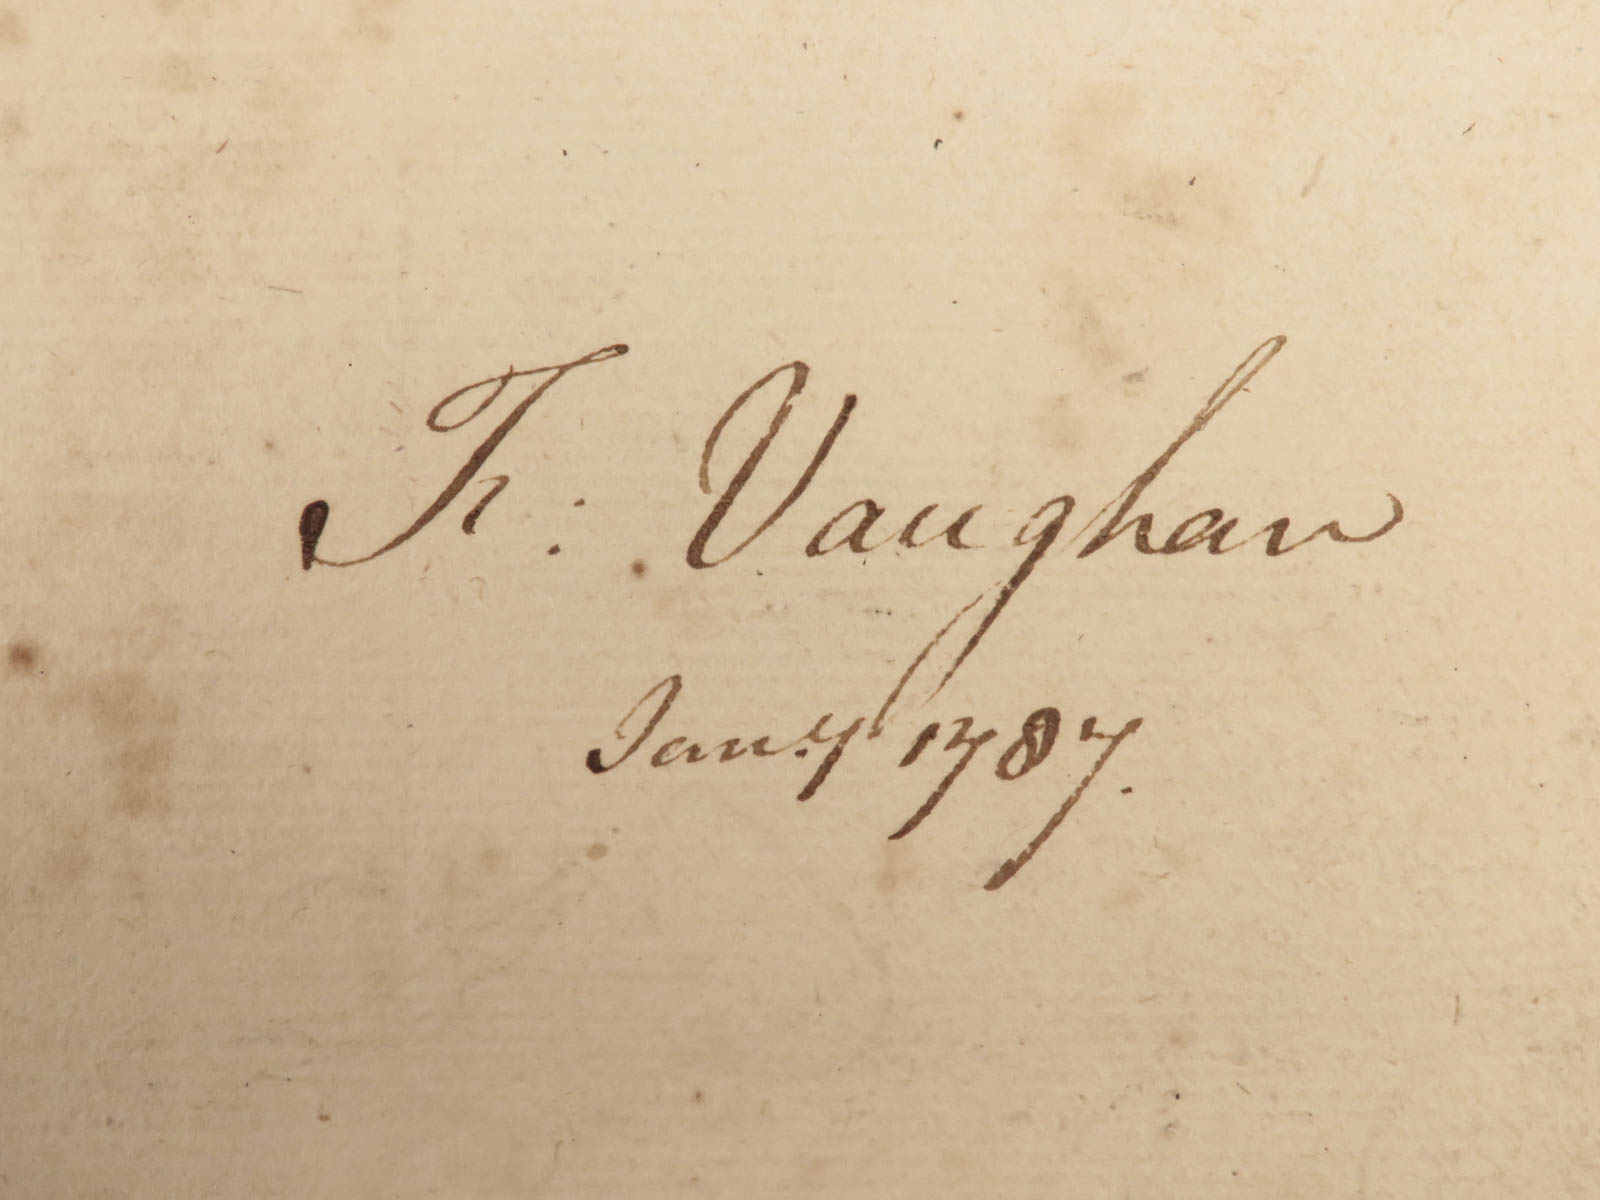 Tr: Vaughan
Jan:y 1787.